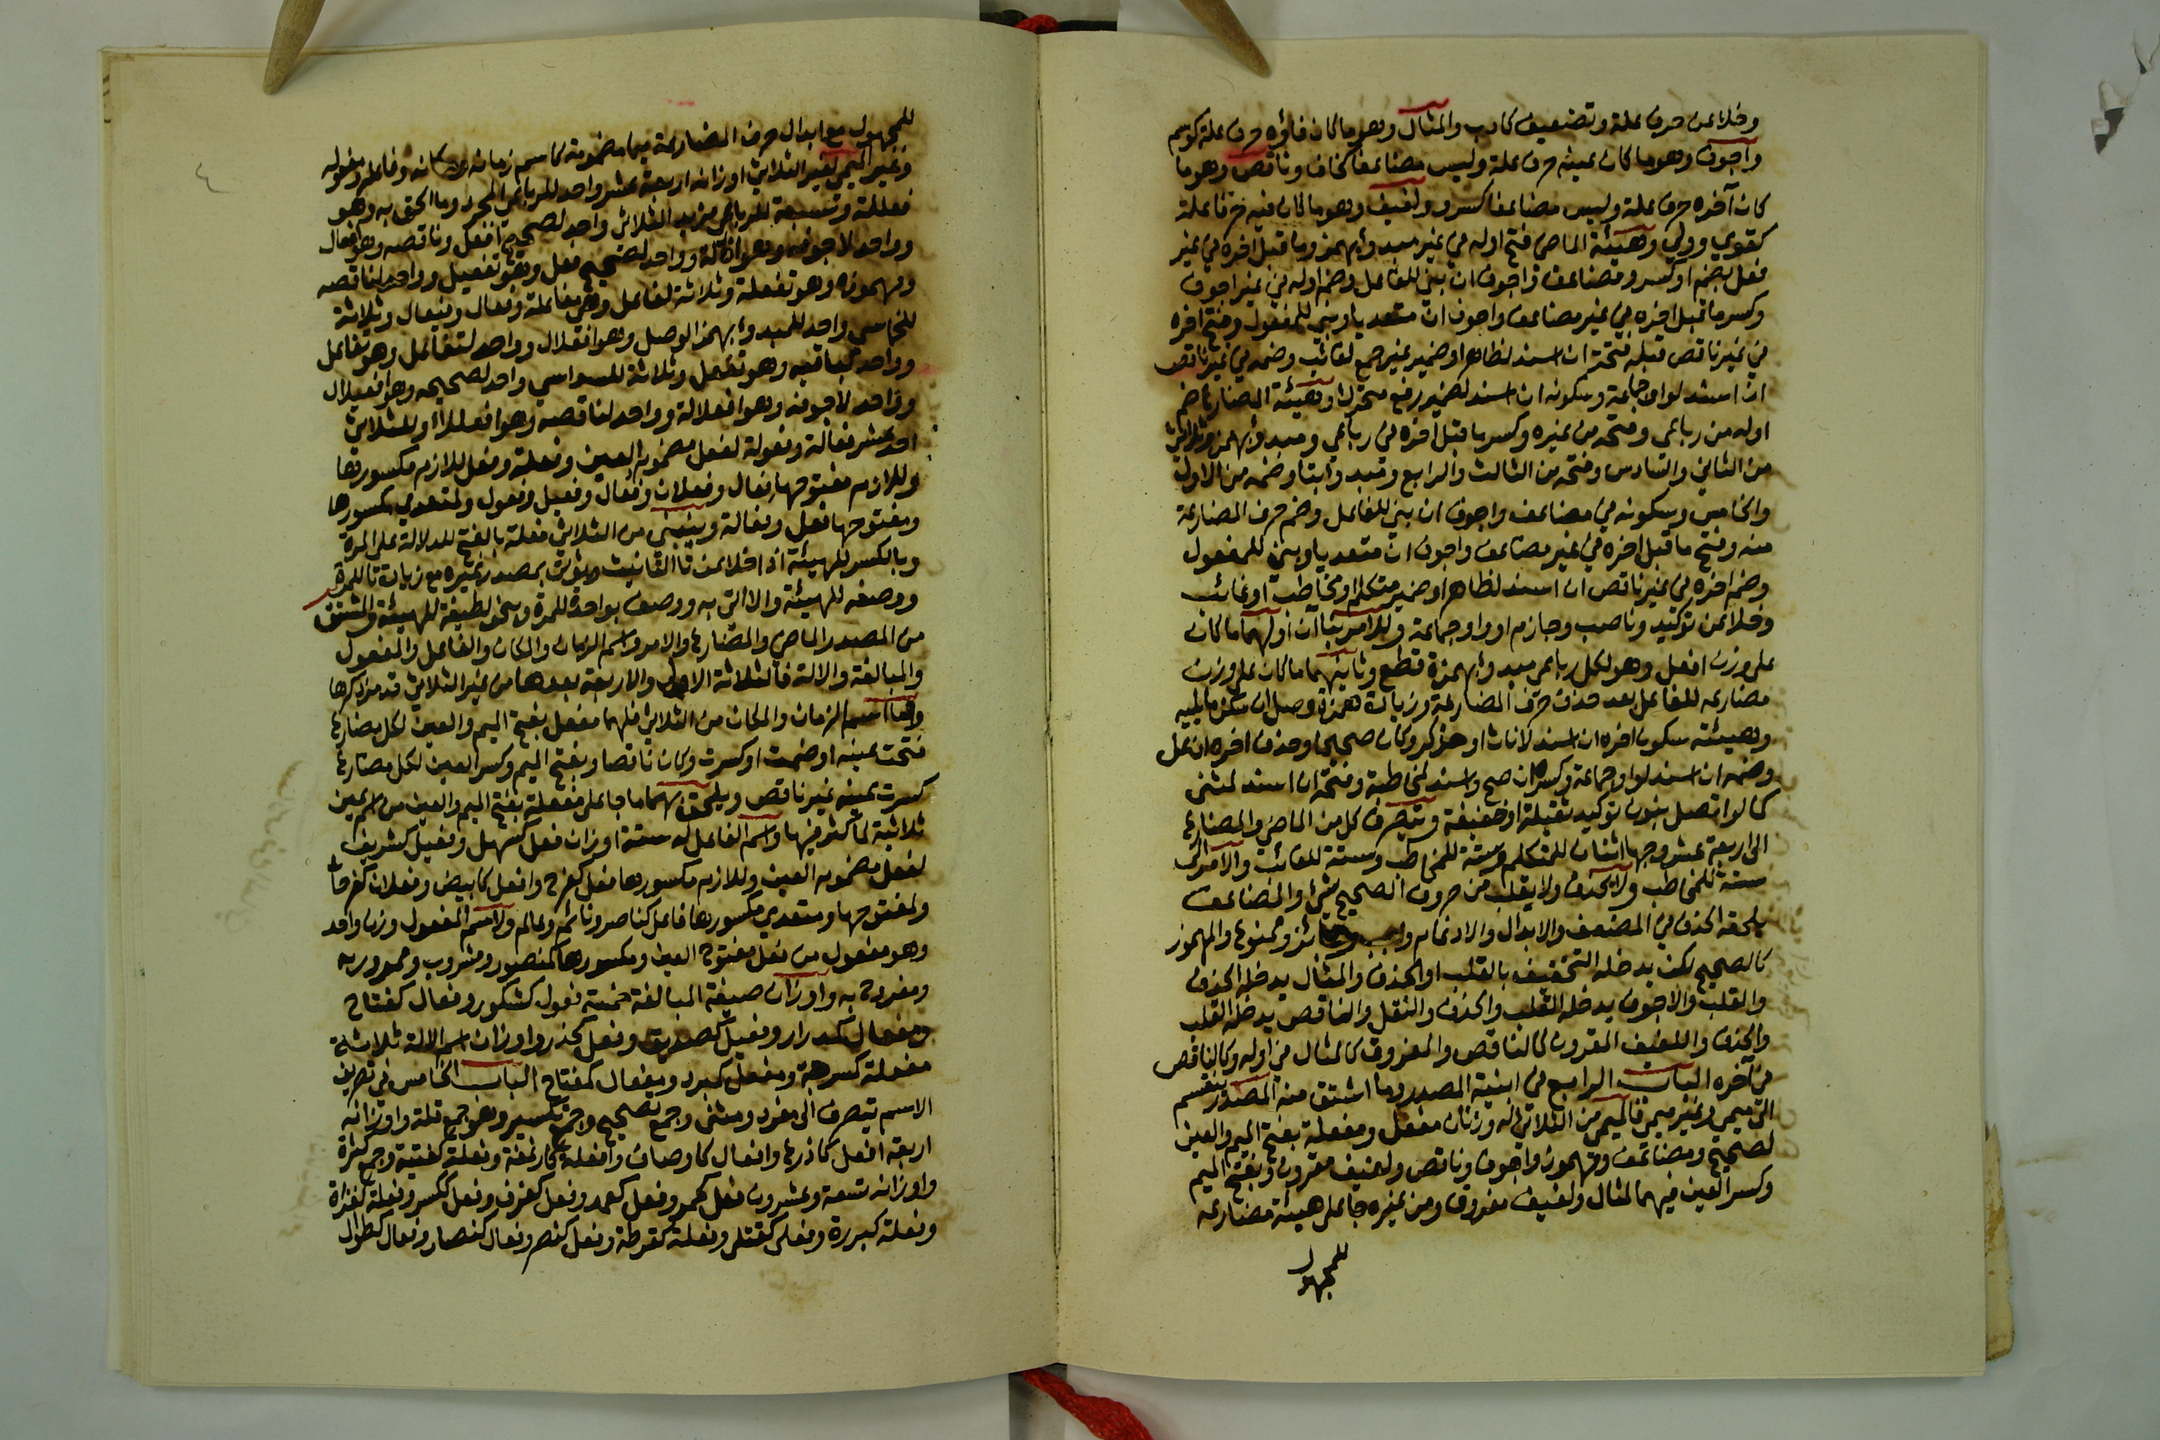 وخلا عن حرف علة وتضعيف كادب والمثال وهو ما كان فاؤه حرف علة كوسم
واجوف وهو ما كان عينه حرف علة وليس مضاعفا كخاف وناقص وهو ما
كان آخره حرف علة وليس مضاعفا كسرو ولفيف وهو ما كان فيه حرفا علة
كقوي وولي وهيئة الماضي فتح اوله في غير مبدوء بهمز وما قبل اخره في غير
فعل بضم او كسر ومضاعف واجوف ان بني للفاعل وضم اوله في غير اجوف
وكسر ما قبل اخره في غير مضاعف واجوف ان متعديا وبني للمفعول وفتح اخره
في غير ناقص قبله فتحة ان اسند لظاهر او ضمير غير جمع لغائب وضمه في غير ناقص
ان اسند لواو جماعة وسكونه ان اسند لضمير رفع متحرك وهيئة المضارع ضم
اوله من رباعي وفتحه من غيره وكسر ما قبل اخره في رباعي ومبدوء بهمز وثلاثي
من الثاني والسادس وفتحه من الثالث والرابع ومبدوء بتا وضمه من الاول
والخامس وسكونه في مضاعف واجوف ان بني للفاعل وضم حرف المضارعة
منه وفتح ما قبل اخره في غير مضاعف واجوف ان متعديا وبني للمفعول
وضم اخره في غير ناقص ان اسند لظاهر او ضمير متكلم او مخاطب او غائب
وخلا عن توكيد وناصب وجازم وواو جماعة وللامر بناآن اولهما ما كان
على وزن افعل وهو لكل رباعي مبدوء بهمزة قطع وثانيهما ما كان على وزن
مضارعه للفاعل بعد حذف حرف المضارعة وزيادة همزة وصل ان سكن ما يليه
وهيئته سكون اخره ان اسند لاناث او مذكر وكان صحيحا وحذف اخره ان عل
وضمه ان اسند لواو جماعة وكسره ان صح واسند لمخاطبة وفتحه ان اسند لمثنى
كما لو اتصل بنون توكيد ثقيلة او خفيفة ويتصرف كل من الماضي والمضارع
الى اربعة عشر وجها اثنان للمتكلم وستة للمخاطب وستة للغائب والامر الى
ستة للمخاطب ولا يحذف ولا يقلب من حروف الصحيح شي والمضاعف
يلحقه الحذف في المضعف والابدال والادغام واجب وجائز وممنوع والمهموز
كالصحيح لكن يدخله التخفيف بالقلب او الحذف والمثال يدخله الحذف
والقلب والاجوف يدخله القلب والحذف والنقل والناقص يدخله القلب
والحذف واللفيف المقرون كالناقص والمفروق كالمثال في اوله وكالناقص
في آخره الباب الرابع في ابنية المصدر وما اشتق منه المصدر ينقسم
الى ميمي وغير ميمي فالميمي من الثلاثي له وزنان مفعل ومفعلة بفتح الميم والعين
لصحيح ومضاعف ومهموز واجوف وناقص ولفيف مقرون وبفتح الميم
وكسر العين فيهما لمثال ولفيف مفروق ومن غيره جا على هيئة مضارعه
للمجهول
٤
للمجهول مع ابدال حرف المضارعة ميما مضمومة كاسم زمانه ومكانه وفاعله ومفعوله
وغير الميمي لغير الثلاثي اوزانه اربعة عشر واحد للرباعي المجرد وما الحق به وهو
فعللة وتسعة للرباعي مزيد الثلاثي واحد لصحيح افعل وناقصه وهو افعال
وواحد لاجوفه وهو افالة وواحد لصحيح فعل وهو تفعيل وواحد لناقصه
ومهموزه وهو تفعلة وثلاثة لفاعل وهي مفاعلة وفعال وفيعال وثلاثة
للخماسي واحد للمبدوء بهمز الوصل وهو افعلال وواحد لتفاعل وهو تفاعل
وواحد لباقيه وهو تفعل وثلاثة للسداسي واحد لصحيحه وهو افعيلال
وواحد لاجوفه وهو افعلالة وواحد لناقصه وهو افعللاا وللثلاثي
احد عشر فعالة وفعولة لفعل مضموم العين وفعلة وفعل للازم مكسورها
وللازم مفتوحها فعال وفعلان وفعال وفعيل وفعول ولمتعدي مكسورها
ومفتوحها فعل وفعالة وينبني من الثلاثي فعلة بالفتح للدلالة على المرة
وبالكسر للهيئة اذا خلا عن تا التانيث ويؤتى بمصدر غيره مع زيادة تا للمرة
ووصفه للهيئة والا اتى به ووصف بواحدة للمرة وبنحو لطيفة للهيئة والمشتق
من المصدر الماضي والمضارع والامر واسم الزمان والمكان والفاعل والمفعول
والمبالغة والالة فالثلاثة الاول والاربعة بعدها من غير الثلاثي قد مر ذكرها
واما اسم الزمان والمكان من الثلاثي فلهما مفعل بفتح الميم والعين لكل مضارع
فتحت عينه او ضمت او كسرت وكان ناقصا وبفتح الميم وكسر العين لكل مضارع
كسرت عينه غير ناقص ويلحق بهما ما جا على مفعلة بفتح الميم والعين من اسم عين
ثلاثية لما كثر فيها واسم الفاعل له ستة اوزان فعل كسهل وفعيل كشريف
لفعل مضموم العين وللازم مكسورها فعل كفرح وافعل كابيض وفعلان كفرحان
ولمفتوحها ومتعدي مكسورها فاعل كناصر ونائم وعالم ولاسم المفعول وزن واحد
وهو مفعول من فعل مفتوح العين ومكسورها كمنصور ومضروب وممرور به
ومفروح به واوزان صيغة المبالغة خمسة فعول كشكور وفعال كفتاح
ومفعال كمدرار وفعيل كصديق وفعل كحذر واوزان اسم الالة ثلاثة
مفعلة كمسرجة ومفعل كمبرد ومفعال كمفتاح الباب الخامس في تصريف
الاسم يتصرف الى مفرد ومثنى وجمع تصحيح وجمع تكسير وهو جمع قلة واوزانه
اربعة افعل كاذرع وافعال كاوصاف وافعلة كارغفة وفعلة كفتية وجمع كثرة
واوزانه تسعة وعشرون فعل كحمر وفعل كعمد وفعل كغرف وفعل ككسر وفعلة كغزاة
وفعلة كبررة وفعلى كقتلى وفعلة كقرطة وفعل كنصر وفعال كنصار وفعال كطوال